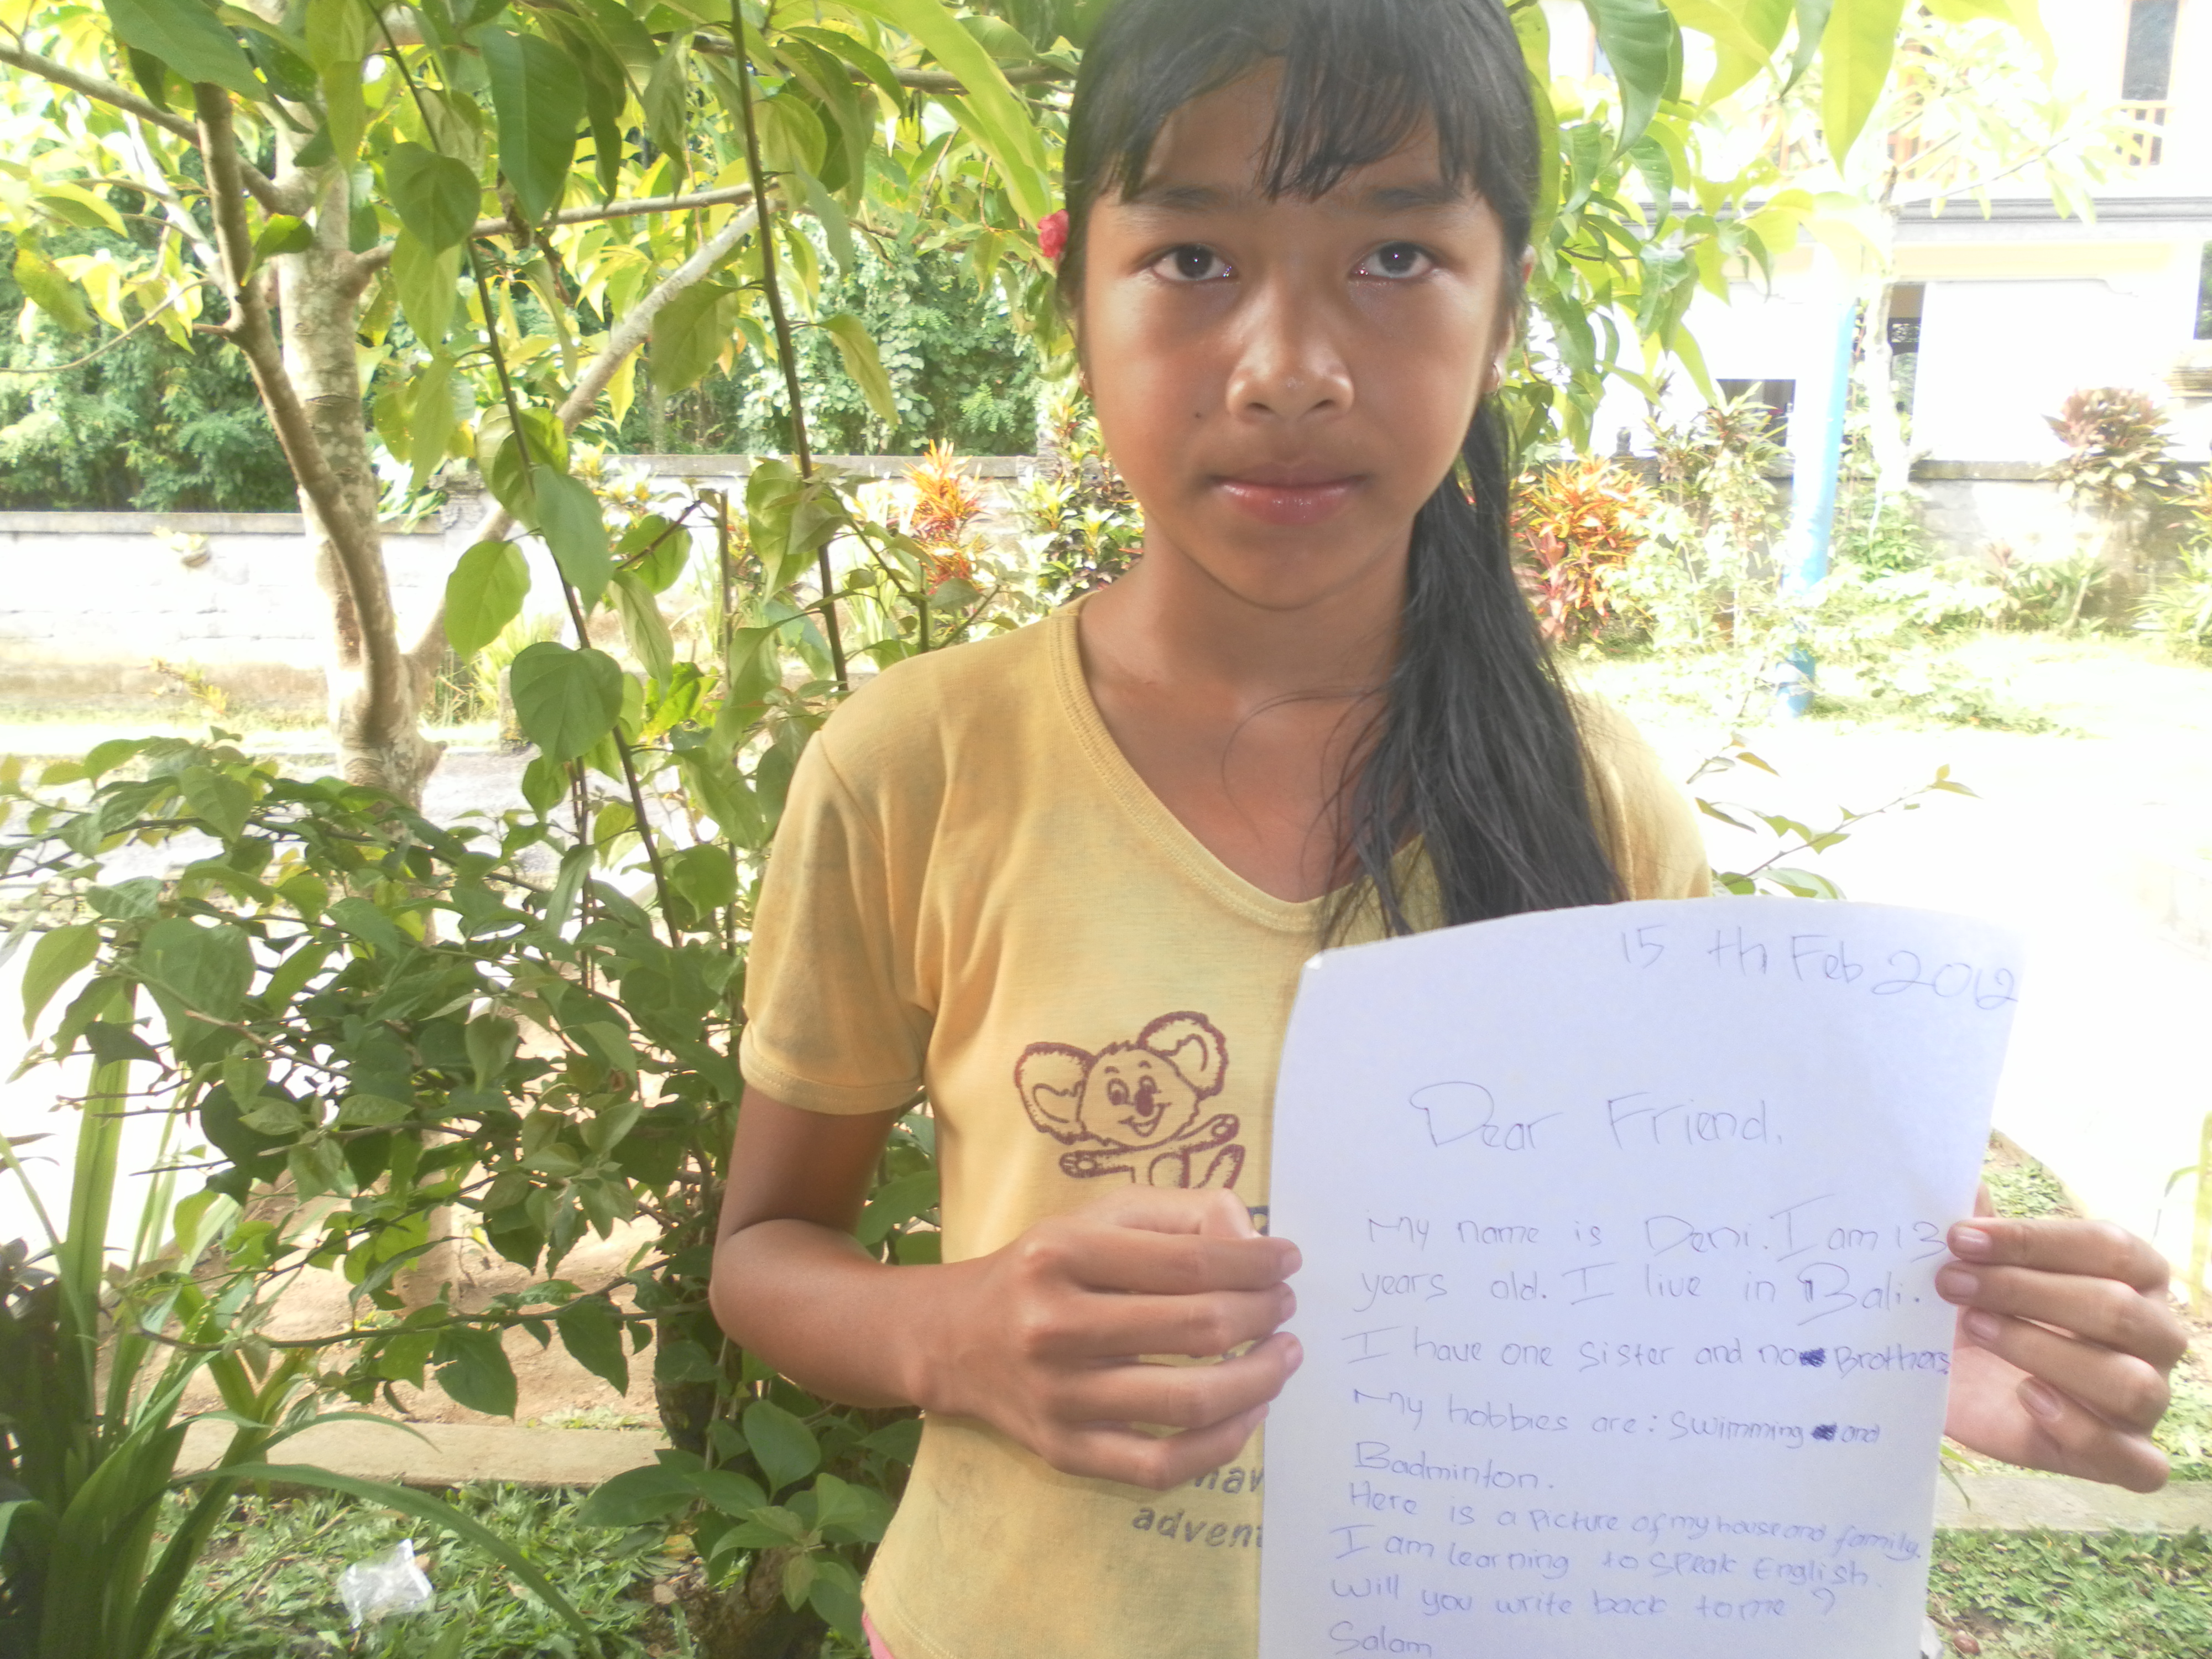 15 th Feb 2012
Dear Friend.
My name is Deni. I am 13
years old. I live in Bali.
I have one sister and no Brothers
My hobbies are: swimming and
Badminton.
Here is a picture of my house and family.
I am learning to speak English.
Will you write back to me?
Salam
adven